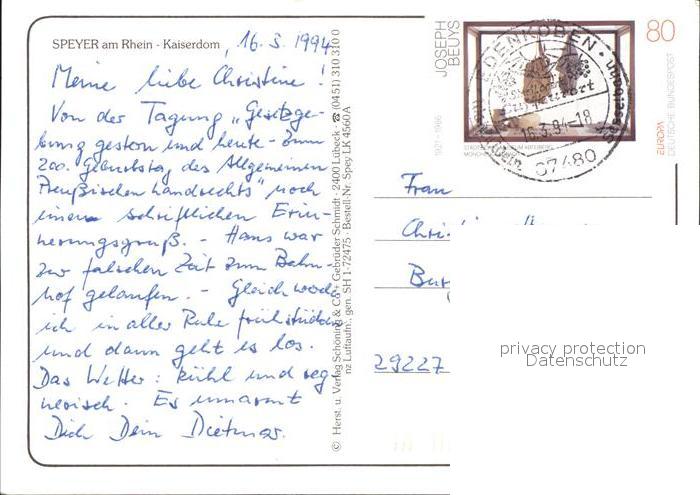 SPEYER am Rhein - Kaiserdom, 16.3.1994
Meine liebe Christine!
Von der Tagung „Gesetzge-
bung gestern und heute - Zum
200. Geburtstag des Allgemeinen
Preußischen Landrechts" noch
einen schriftlichen Erin-
nerungsgruß. - Hans war
zur falschen Zeit zum Bahn-
hof gelaufen. - Gleich werde
ich in aller Ruhe frühstücken
und dann geht es los.
Das Wetter: kühl und reg-
nerisch. Es umarmt
Dich Dein Dietmar.
© Herst. u. Verlag Schöning & Co + Gebrüder Schmidt · 2400 Lübeck · ☎ (0451) 310 310 0
nz Luftaufn.: gen. SH 1-72475 · Bestell-Nr. Spey LK 4560 A
JOSEPH
BEUYS
1921-1986
80
EUROPA
DEUTSCHE BUNDESPOST
EDENKOBEN
16.3.94-18
67480
Frau
29227
privacy protection
Datenschutz